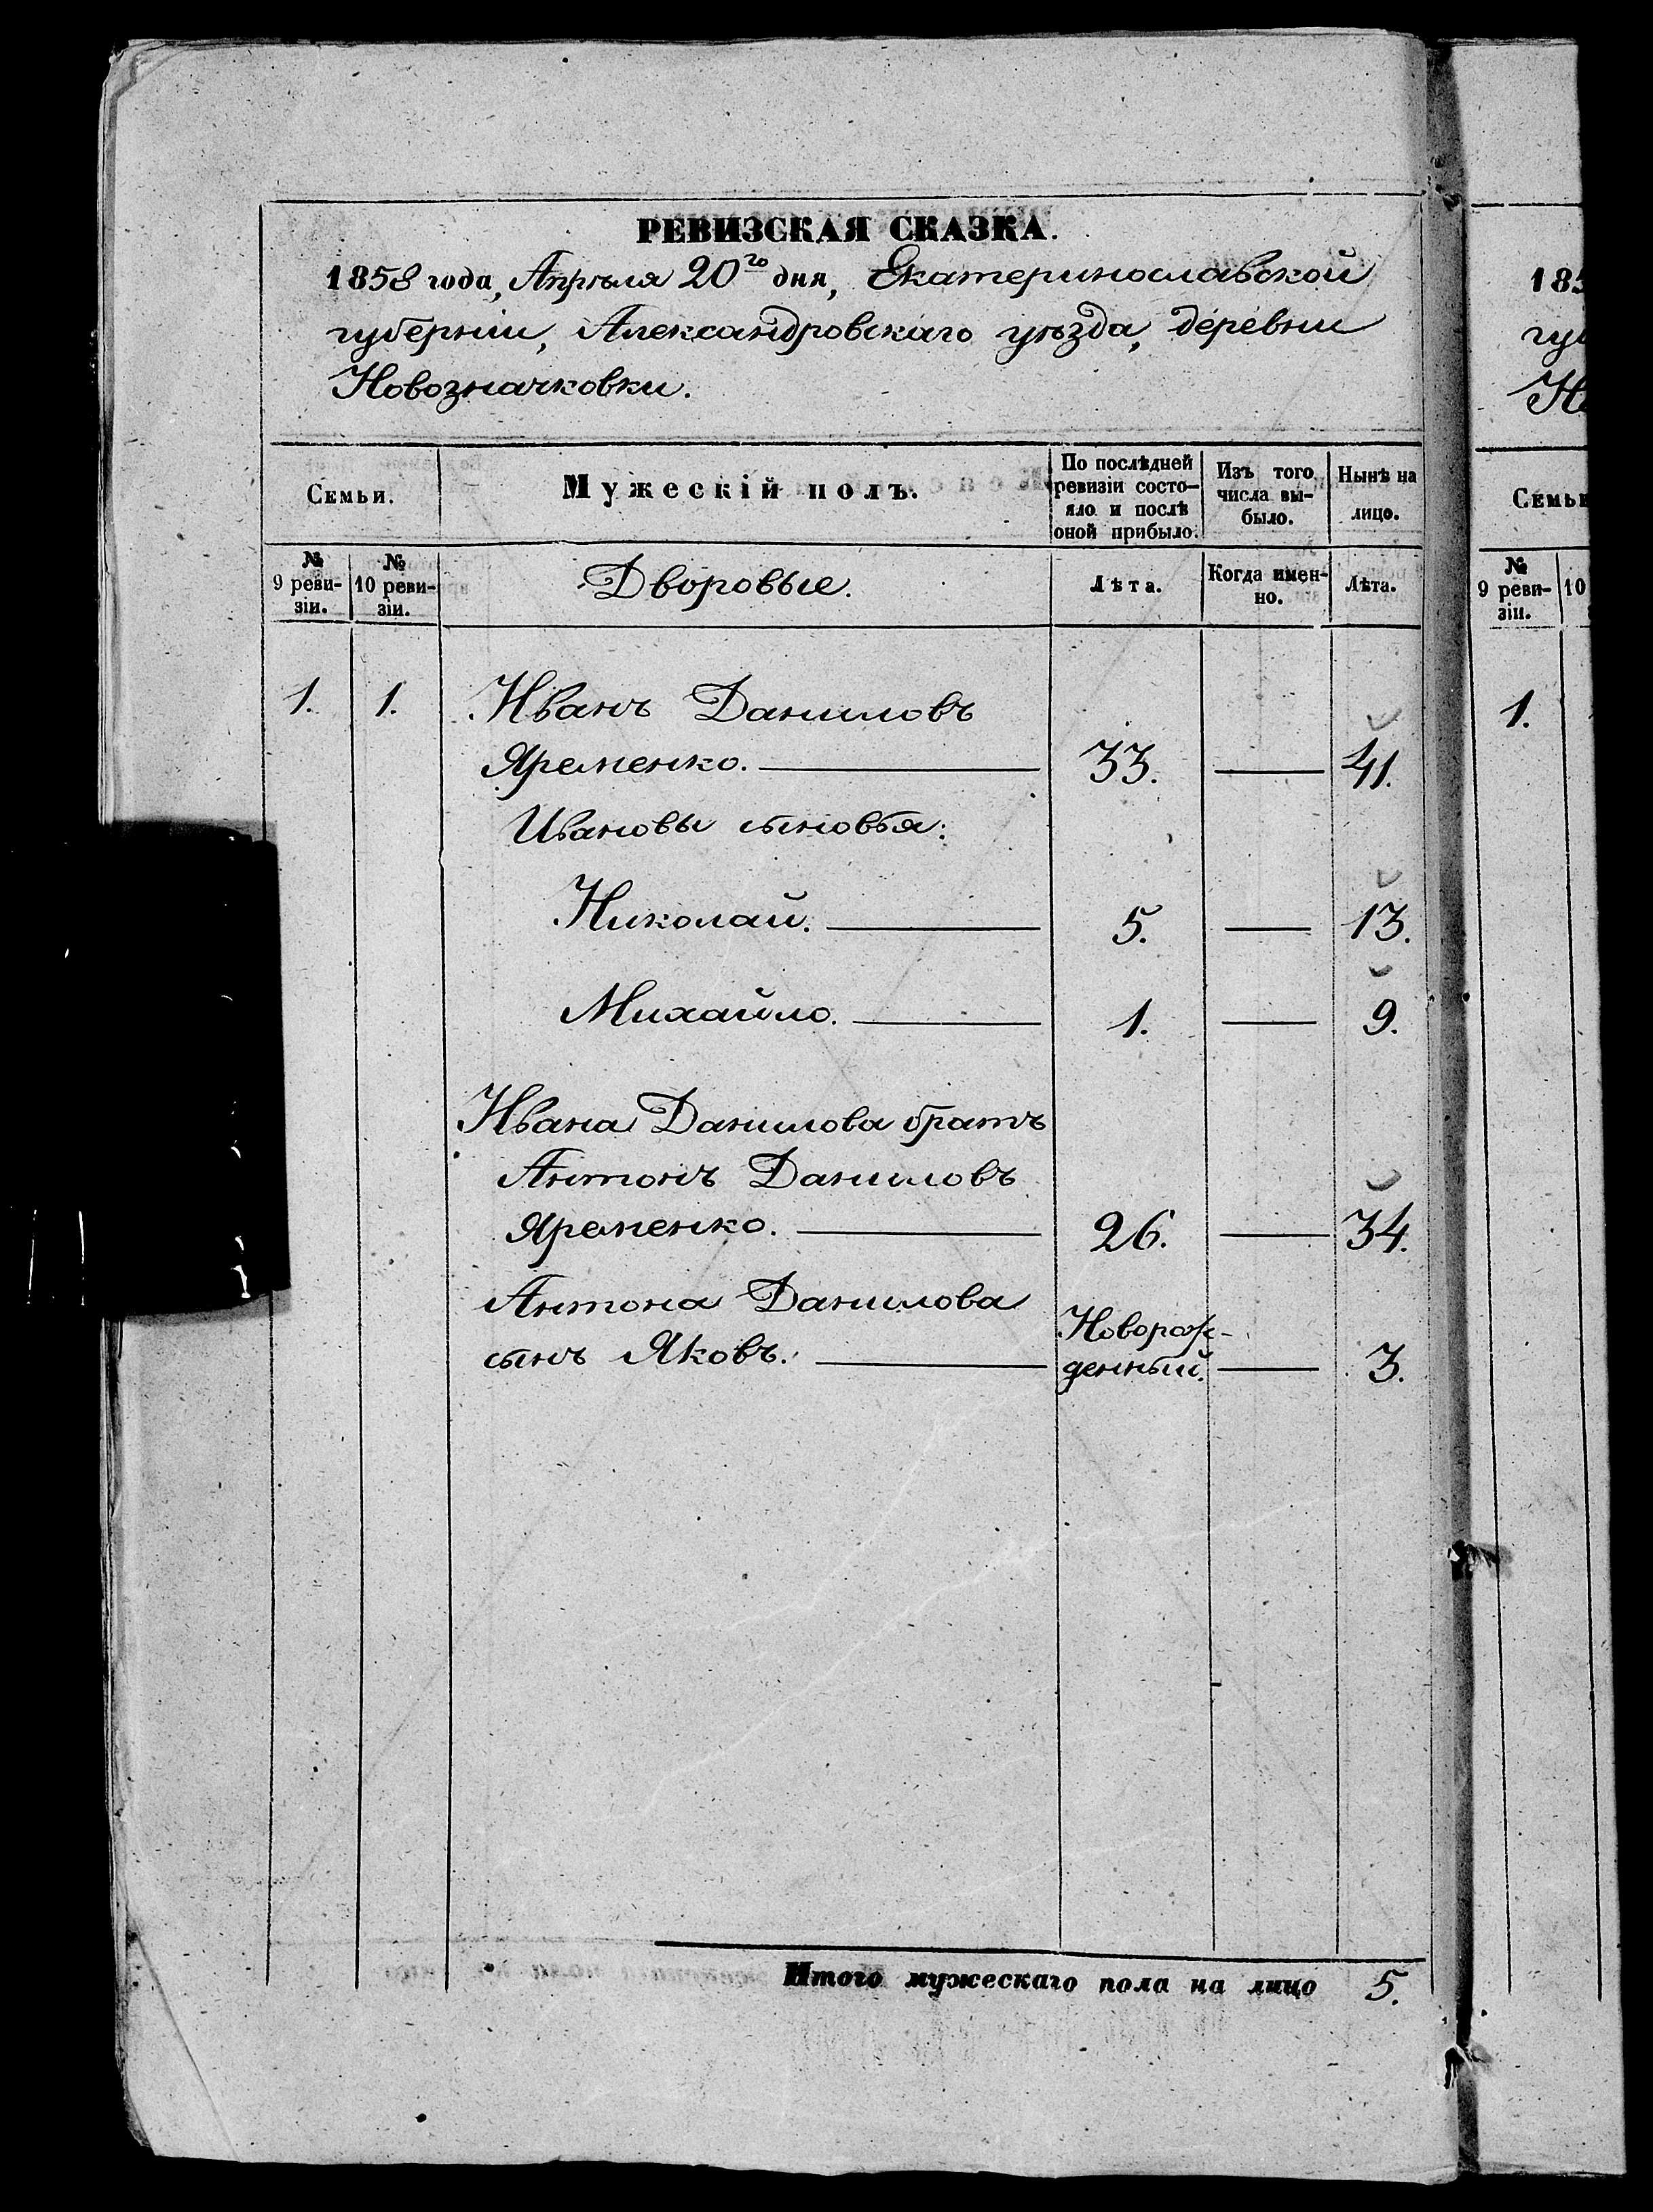 РЕВИЗСКАЯ СКАЗКА.
1858 года, Апрѣля 20го дня, Екатеринославской
губерніи, Александровскаго уѣзда, деревни
Новозначковки.
Семьи.
Мужескій полъ.
По послѣдней
ревизіи состо-
яло и послѣ
оной прибыло.
Изъ того
числа вы-
было.
Нынѣ на
лицо.
№
9 реви-
зіи.
№
10 реви-
зіи.
Дворовые.
Лѣта.
Когда имен-
но.
Лѣта.
1. 1. Иванъ Даниловъ
Яременко. 33. — 41.
Ивановы сыновья:
Николай. 5. — 13.
Михайло. 1. — 9.
Ивана Данилова братъ
Антонъ Даниловъ
Яременко. 26. — 34.
Антона Данилова
сынъ Яковъ. Новорож-
денный. — 3.
Итого мужескаго пола на лицо 5.
185
гу
Но
Семьи
№
9 реви-
зіи.
10
1.